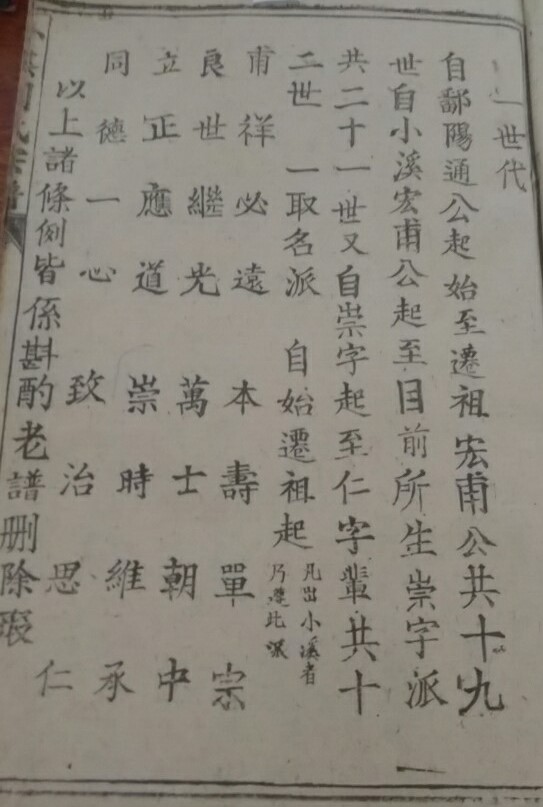 一世代
自鄱陽通公起始至遷祖宏甫公共十九
世自小溪宏甫公起至目前所生崇字派
共二十一世又自崇字起至仁字輩共十
二世 一取名派 自始遷祖起 凡出小溪者
乃遵此派
甫祥必遠 本壽單宗
良世繼光 萬士朝中
立正應道 崇時維承
同德一心 致治思仁
以上諸條例皆係斟酌老譜删除瑕